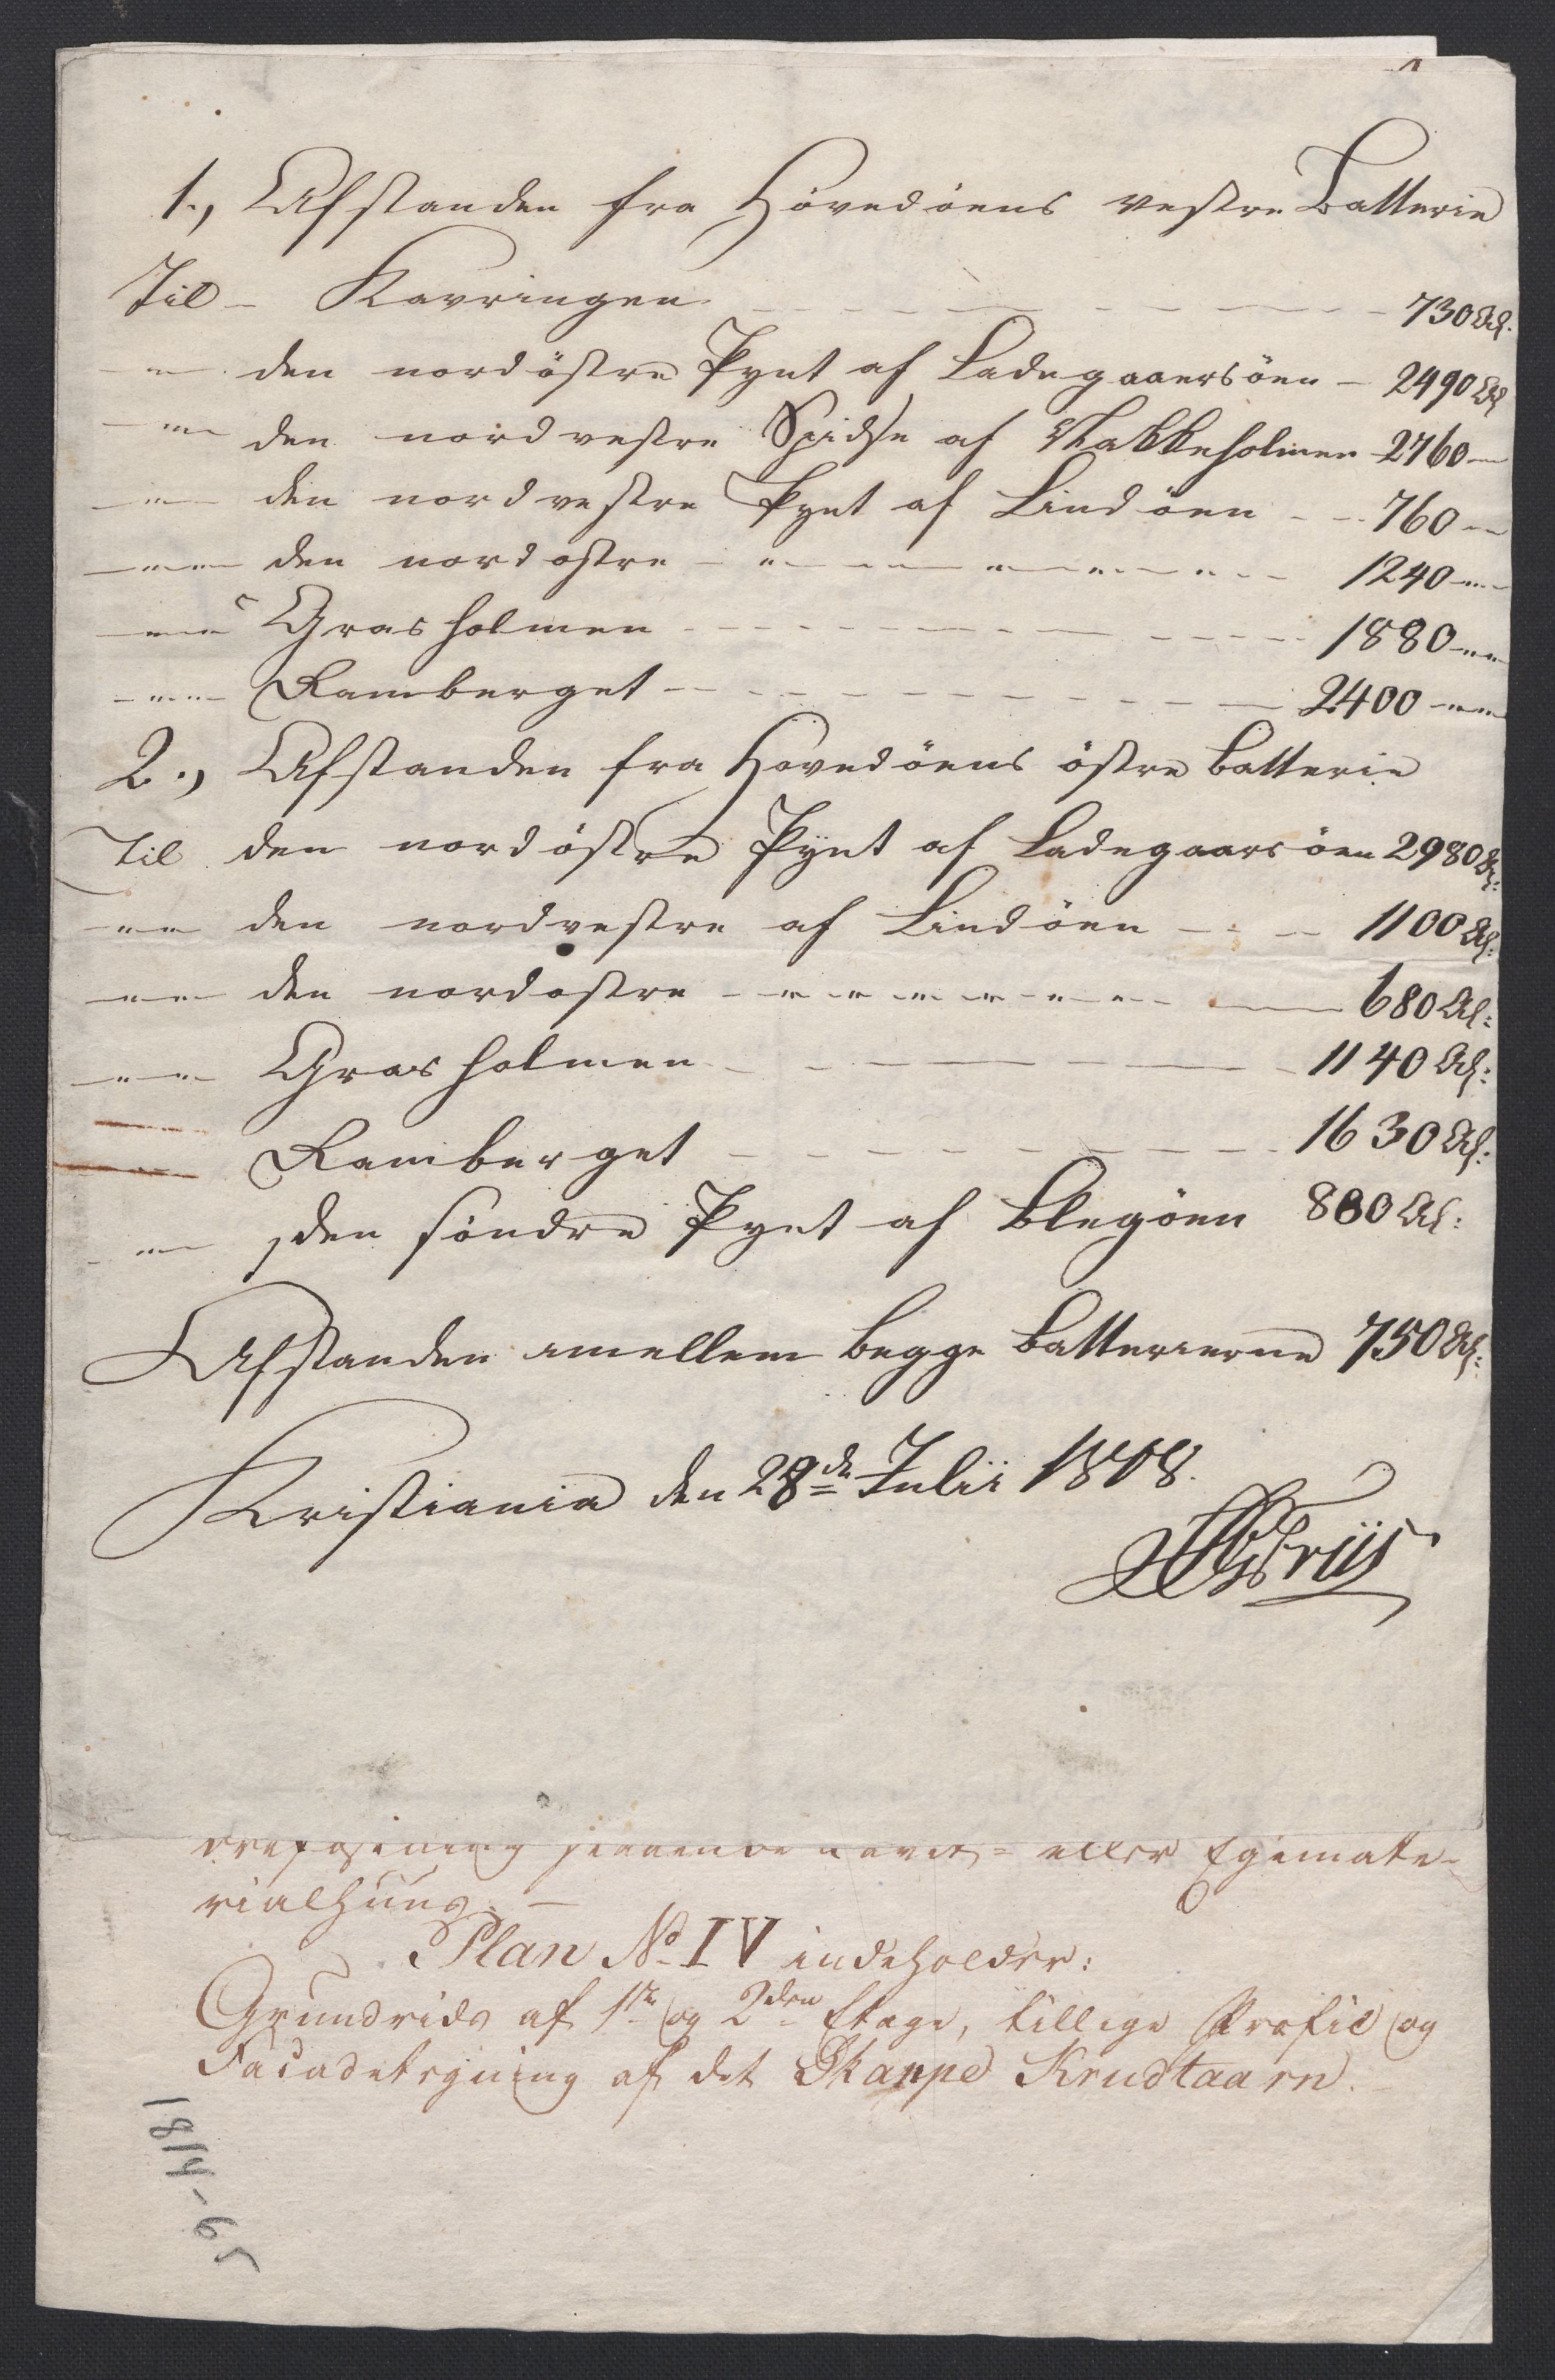 1., Afstanden fra Hövedöens vestre Batterie
Til - Kavringen - - - 730 Al.
— " — den nordöstre Pynt af Ladegaarsöen - 2490 Al
— " — den nordvestre Spidse af Nakkeholmen 2760 —
— " — den nordvestre Pynt af Lindöen - - 760 —
— " — den nordostre — " — " — " — 1240 — " —
— " — Grasholmen - - - 1880 — " —
— " — Ramberget - - - 2400 — " —
2., Afstanden fra Hovedöens östre Batterie
Til den nordöstre Pÿnt af Ladegaarsöen 2980 Al:
— " — den nordvestre af Lindöen - - 1100 Al:
— " — den nordostre — " — " — " — 680 Al:
— " — Grasholmen - - - 1140 Al:
— " — Ramberget - - - 1630 Al:
— " — den söndre Pynt af Blegöen 800 Al:
Afstanden imellem begge Batterierne 750 Al:
Kristiania den 28de Julii 1808.
Friis
eller Egemate-
rialhuus. —
Plan No IV indeholder:
Grundrids af 1ste og 2den Etage, tillige Profil og
Facadetegning af det Skarpe Krudtaarn.
1814-65